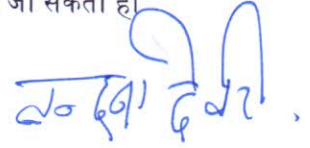 जा सकता है।
वन्दना देवी.